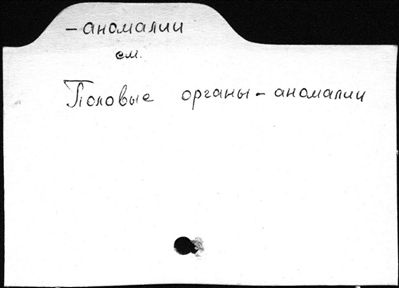 -аномалии
см.
Половые органы - аномалии